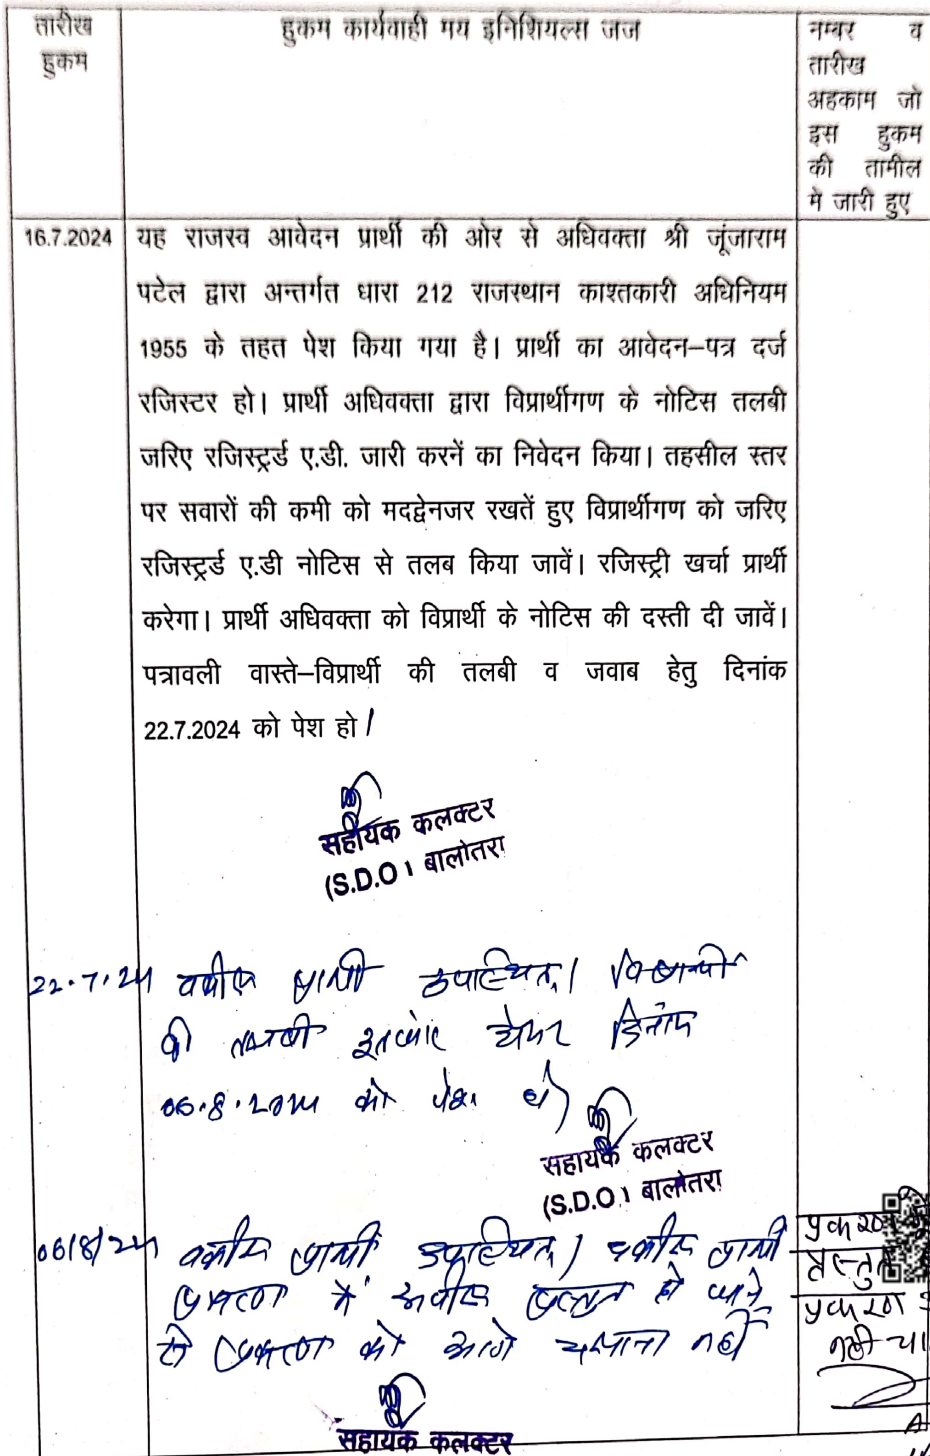 तारीख
हुकम
हुकम कार्यवाही मय इनिशियल्स जज
नम्बर व
तारीख
अहकाम जो
इस हुकम
की तामील
मे जारी हुए
16.7.2024
यह राजस्व आवेदन प्रार्थी की ओर से अधिवक्ता श्री जूंजाराम
पटेल द्वारा अन्तर्गत धारा 212 राजस्थान काश्तकारी अधिनियम
1955 के तहत पेश किया गया है। प्रार्थी का आवेदन–पत्र दर्ज
रजिस्टर हो। प्रार्थी अधिवक्ता द्वारा विप्रार्थीगण के नोटिस तलबी
जरिए रजिस्ट्रर्ड ए.डी. जारी करनें का निवेदन किया। तहसील स्तर
पर सवारों की कमी को मदद्वेनजर रखतें हुए विप्रार्थीगण को जरिए
रजिस्ट्रर्ड ए.डी नोटिस से तलब किया जावें। रजिस्ट्री खर्चा प्रार्थी
करेगा। प्रार्थी अधिवक्ता को विप्रार्थी के नोटिस की दस्ती दी जावें।
पत्रावली वास्ते–विप्रार्थी की तलबी व जवाब हेतु दिनांक
22.7.2024 को पेश हो।
सहायक कलक्टर
(S.D.O) बालोतरा
22.7.24 वकील प्रार्थी उपस्थित। विप्रार्थी
की तलबी होकर दिनांक
06.8.2024 को पेश हो
सहायक कलक्टर
(S.D.O) बालोतरा
06/8/24 वकील प्रार्थी उपस्थित। वकील प्रार्थी
प्रकरण में अपील प्रस्तुत हो जाने
से प्रकरण को आगे चलाना नहीं
सहायक कलक्टर
प्रकरण
प्रकरण
नही चा